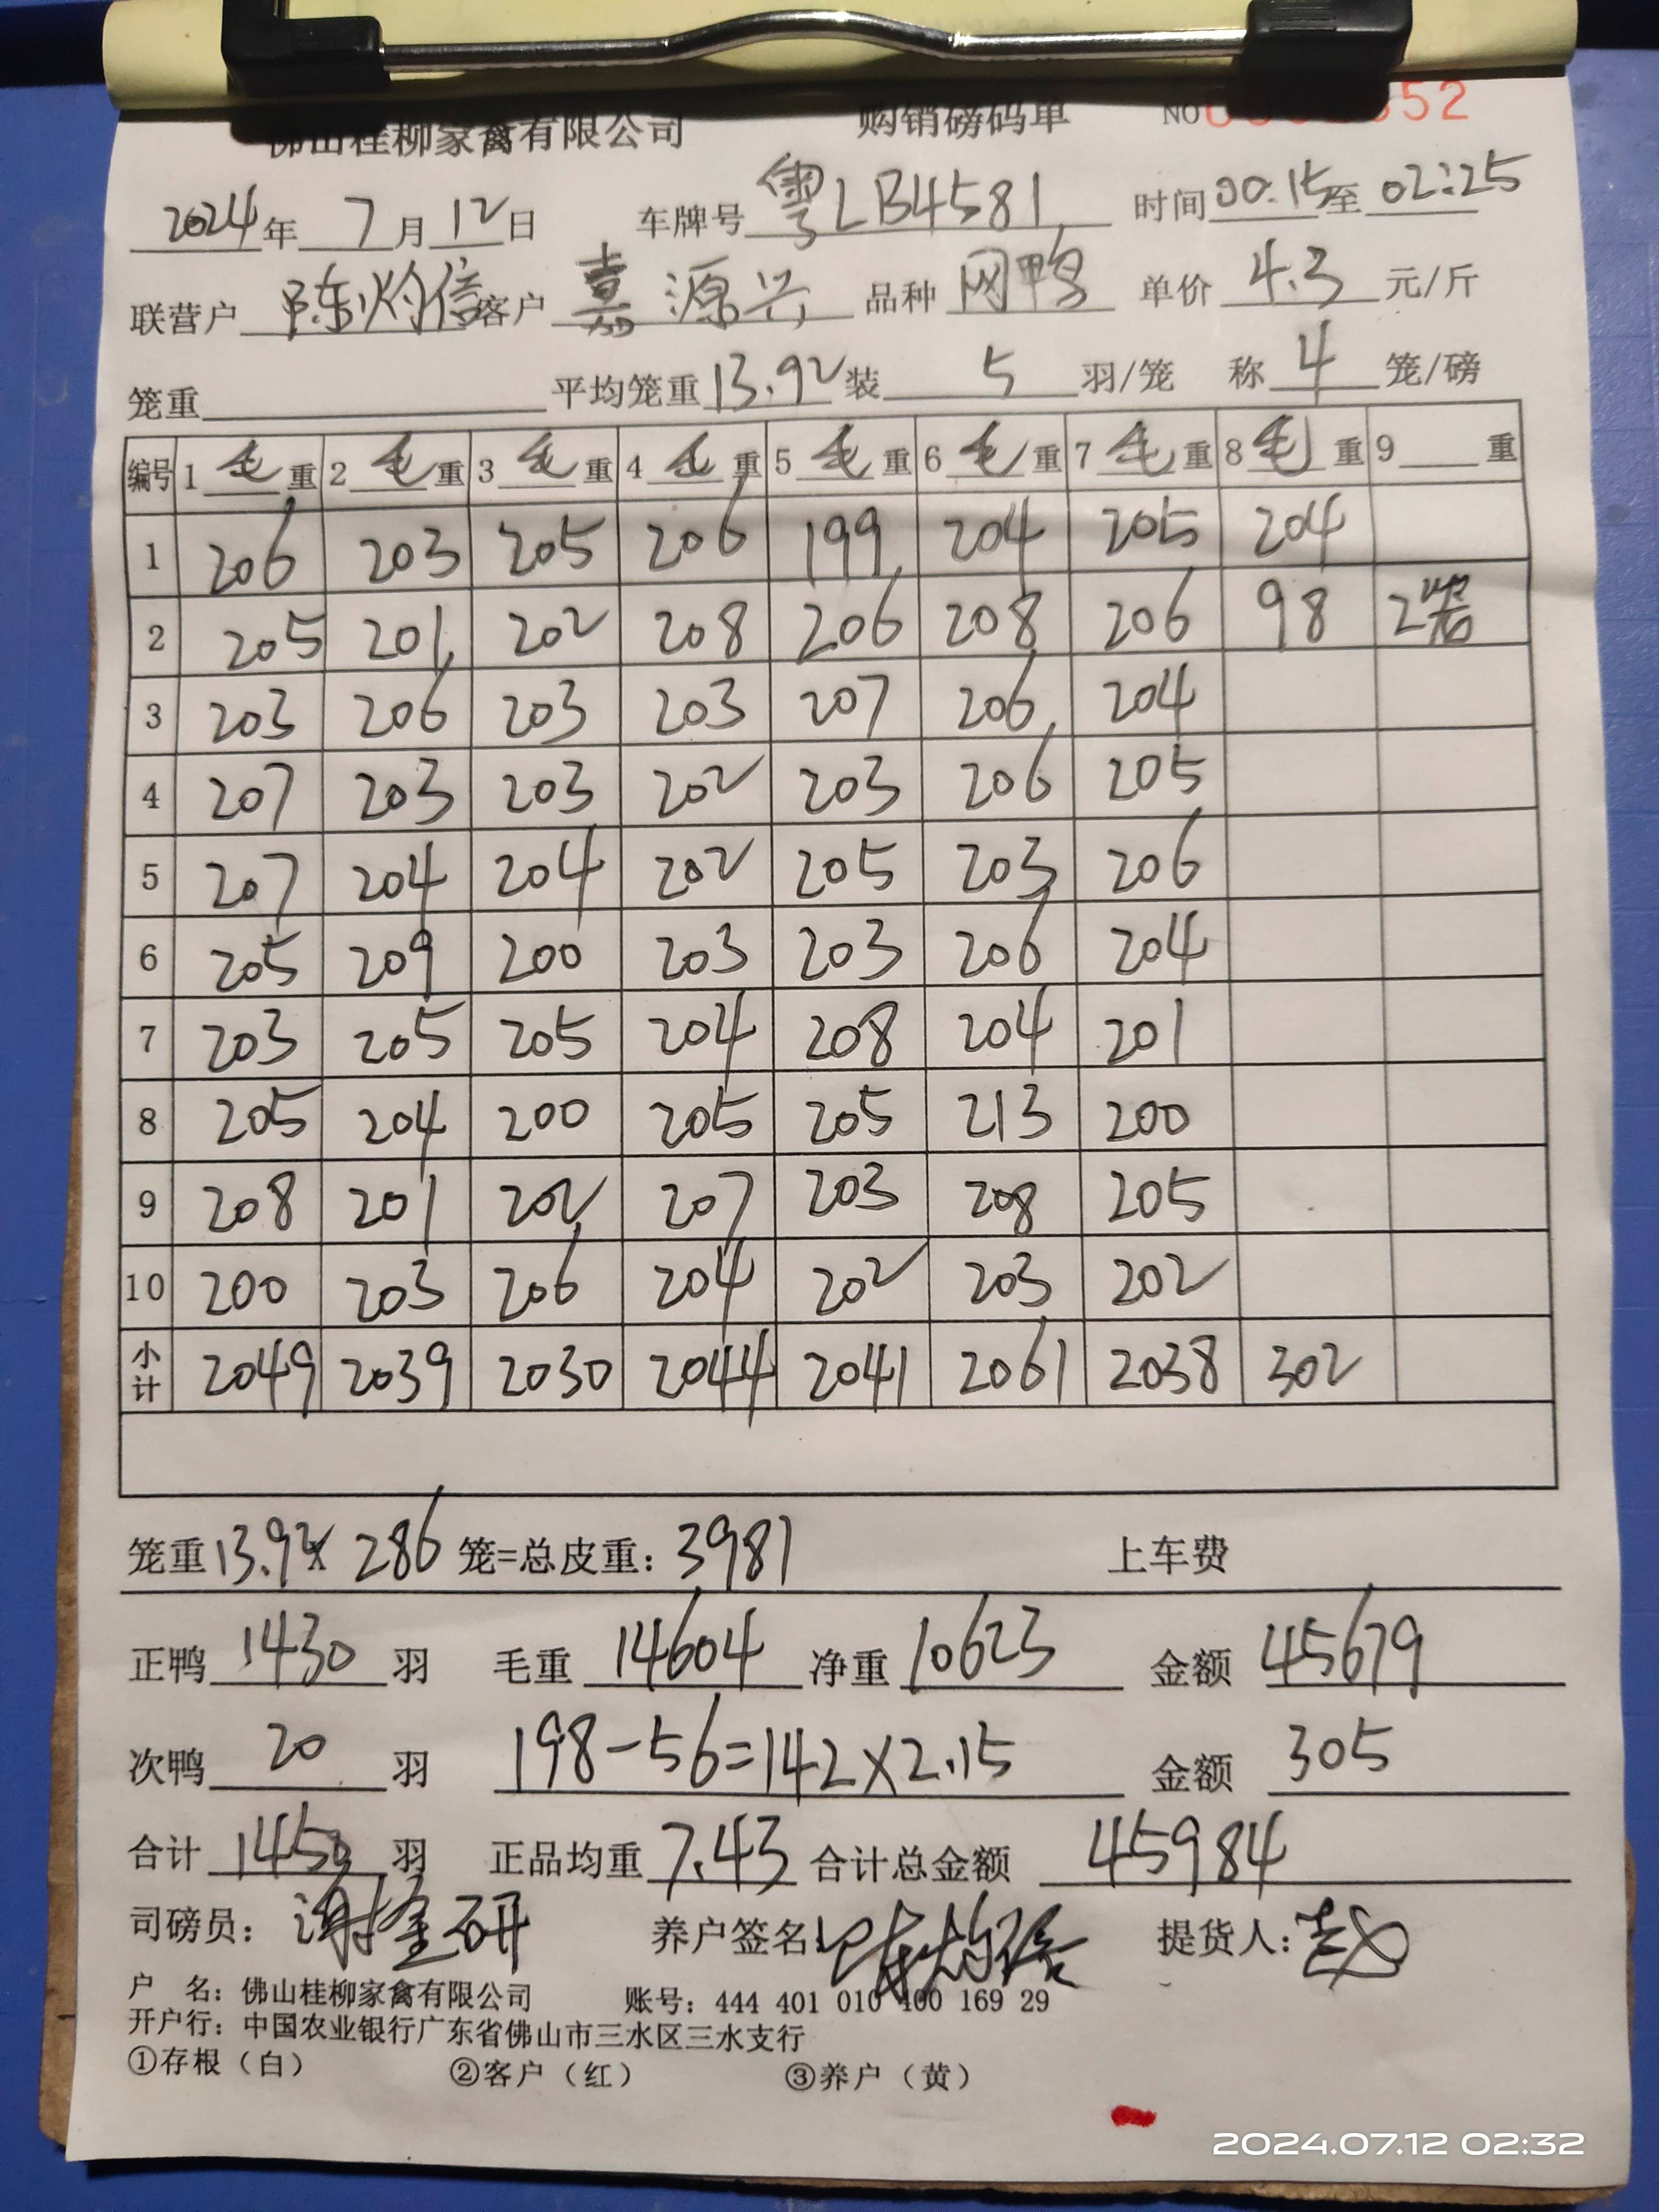 佛山桂柳家禽有限公司 购销磅码单 NO 52
2024年 7月12日 车牌号 粤LB4581 时间00:15至02:25
联营户 陈灼信 客户 嘉源兴 品种 网鸭 单价 4.3 元/斤
笼重 平均笼重13.92装 5 羽/笼 称 4 笼/磅
编号 1毛重 2毛重 3毛重 4毛重 5毛重 6毛重 7毛重 8毛重 9 重
1 206 203 205 206 199 204 205 204
2 205 201 202 208 206 208 206 98 2笼
3 203 206 203 203 207 206 204
4 207 203 203 202 203 206 205
5 207 204 204 202 205 203 206
6 205 209 200 203 203 206 204
7 203 205 205 204 208 204 201
8 205 204 200 205 205 213 200
9 208 201 202 207 203 208 205
10 200 203 206 204 202 203 202
小计 2049 2039 2030 2044 2041 2061 2038 302
笼重13.92x 286 笼=总皮重：3981 上车费
正鸭 1430 羽 毛重 14604 净重 10623 金额 45679
次鸭 20 羽 198-56=142×2.15 金额 305
合计 1450 羽 正品均重 7.43 合计总金额 45984
司磅员： 养户签名：陈灼信 提货人：赵
户 名：佛山桂柳家禽有限公司 账号：444 401 010 400 169 29
开户行：中国农业银行广东省佛山市三水区三水支行
①存根（白） ②客户（红） ③养户（黄）
2024.07.12 02:32